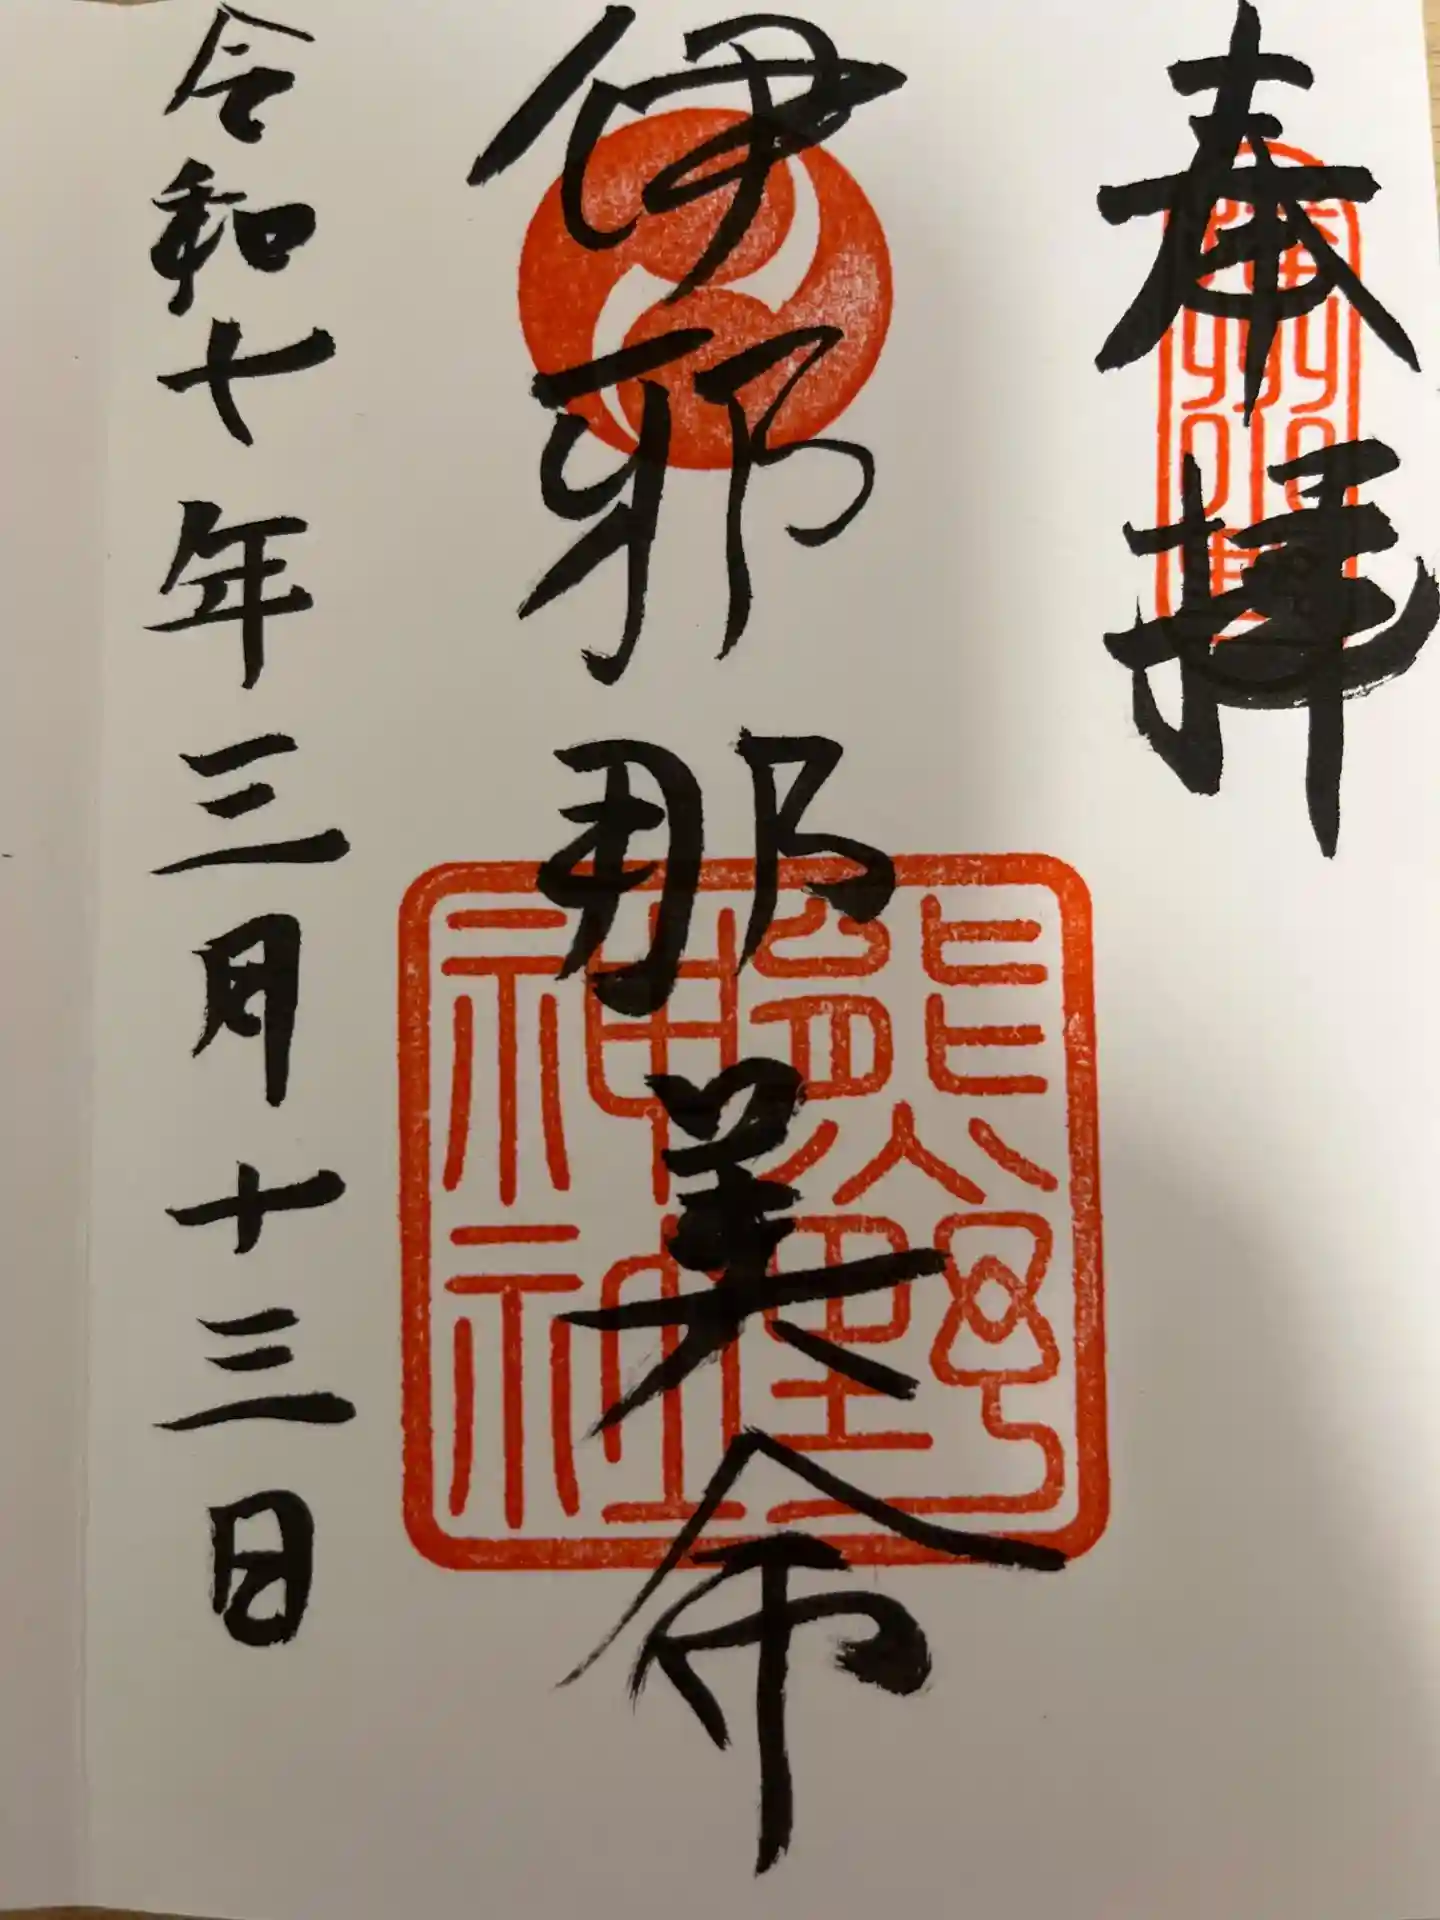 奉拝
伊邪那美命
熊野
神社
令和七年三月十三日